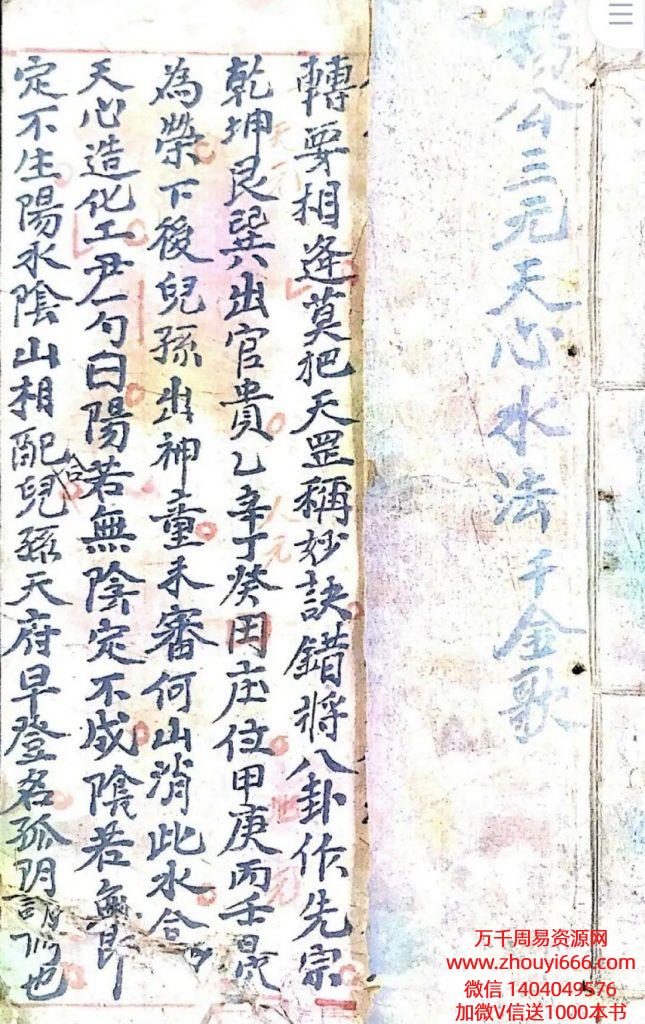 楊公三元天心水法千金歌
轉要相逢莫把天罡稱妙訣錯將八卦作先宗
乾坤艮巽出官貴乙辛丁癸田庄位甲庚丙壬最
為榮下後兒孫出神童未審何山消此水合
天心造化工尹句曰陽若無陰定不成陰若無
定不生陽水陰山相配合兒孫天府早登名孤阴
也
人元
元
万千周易资源网
www.zhouyi666.com
微信 1404049576
加微V信送1000本书